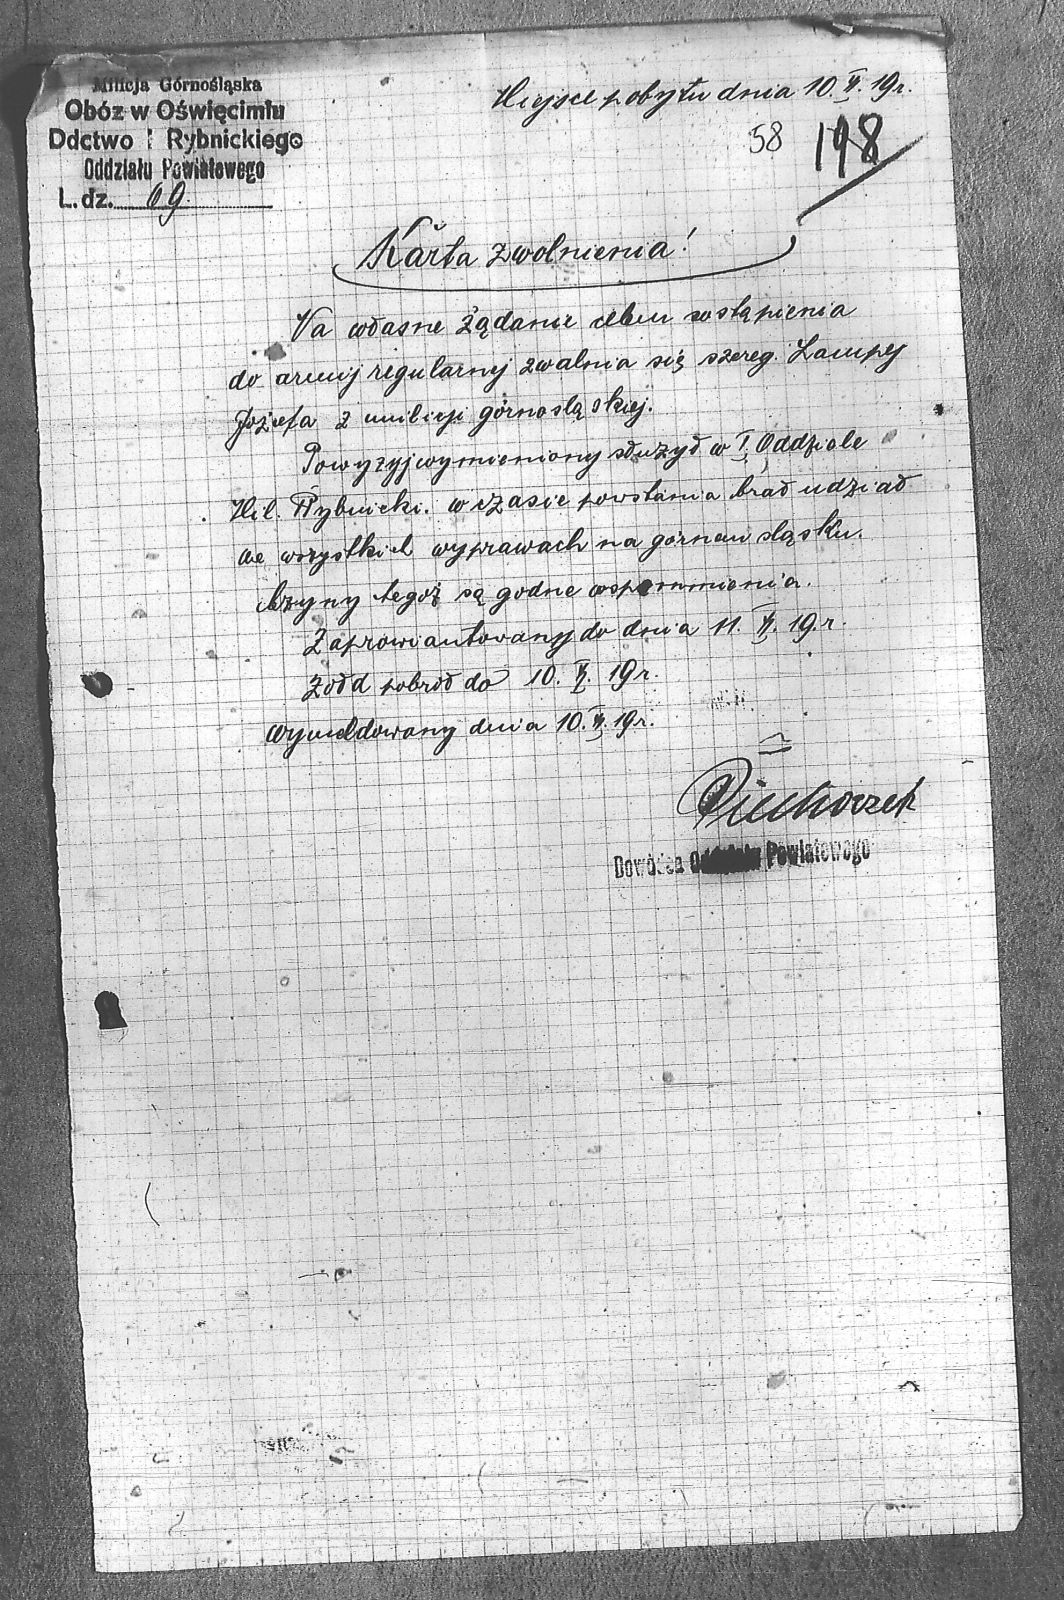 Milicja Górnośląska
Obóz w Oświęcimiu
Ddctwo I Rybnickiego
Oddziału Powiatowego
L. dz. 69.
Miejsce pobytu dnia 10. X. 19 r.
58 198
Karta zwolnienia!
Na własne żądanie celem wstąpienia
do armij regularnej zwalnia się szereg. Lampej
Józefa z milicji górnośląskiej.
Powyżejwymieniony służył w I. Oddziele
Mil. Rybnicki. w czasie powstania brał udział
we wszystkich wyprawach na górnem śląsku.
Czyny tegoż są godne wspomnienia.
Zaprowiantowany do dnia 11. X. 19. r.
Żołd pobrał do 10. X. 19 r.
wymeldowany dnia 10. X. 19 r.
Piechoczek
Dowódca Powiatowego